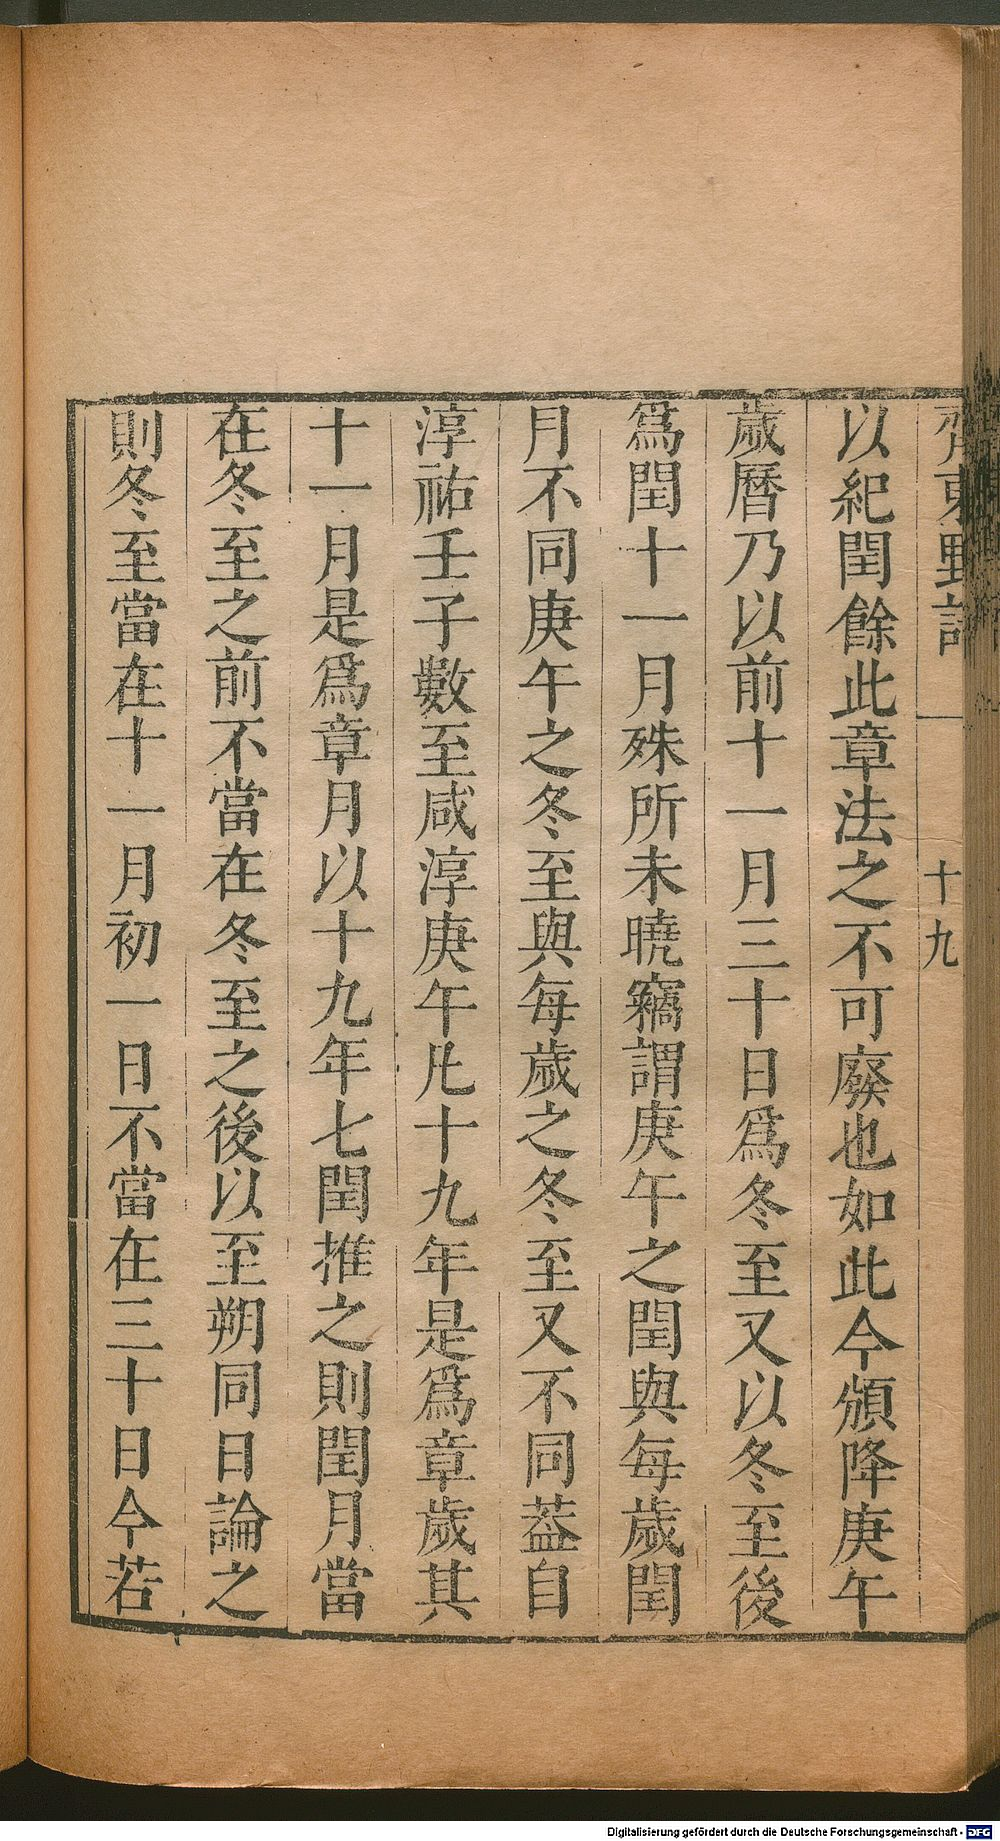 齊東野語
十九
以紀閏餘此章法之不可廢也如此今頒降庚午
歲曆乃以前十一月三十日爲冬至又以冬至後
爲閏十一月殊所未曉竊謂庚午之閏與每歲閏
月不同庚午之冬至與每歲之冬至又不同葢自
淳祐壬子數至咸淳庚午凡十九年是爲章歲其
十一月是爲章月以十九年七閏推之則閏月當
在冬至之前不當在冬至之後以至朔同日論之
則冬至當在十一月初一日不當在三十日今若
Digitalisierung gefördert durch die Deutsche Forschungsgemeinschaft - DFG